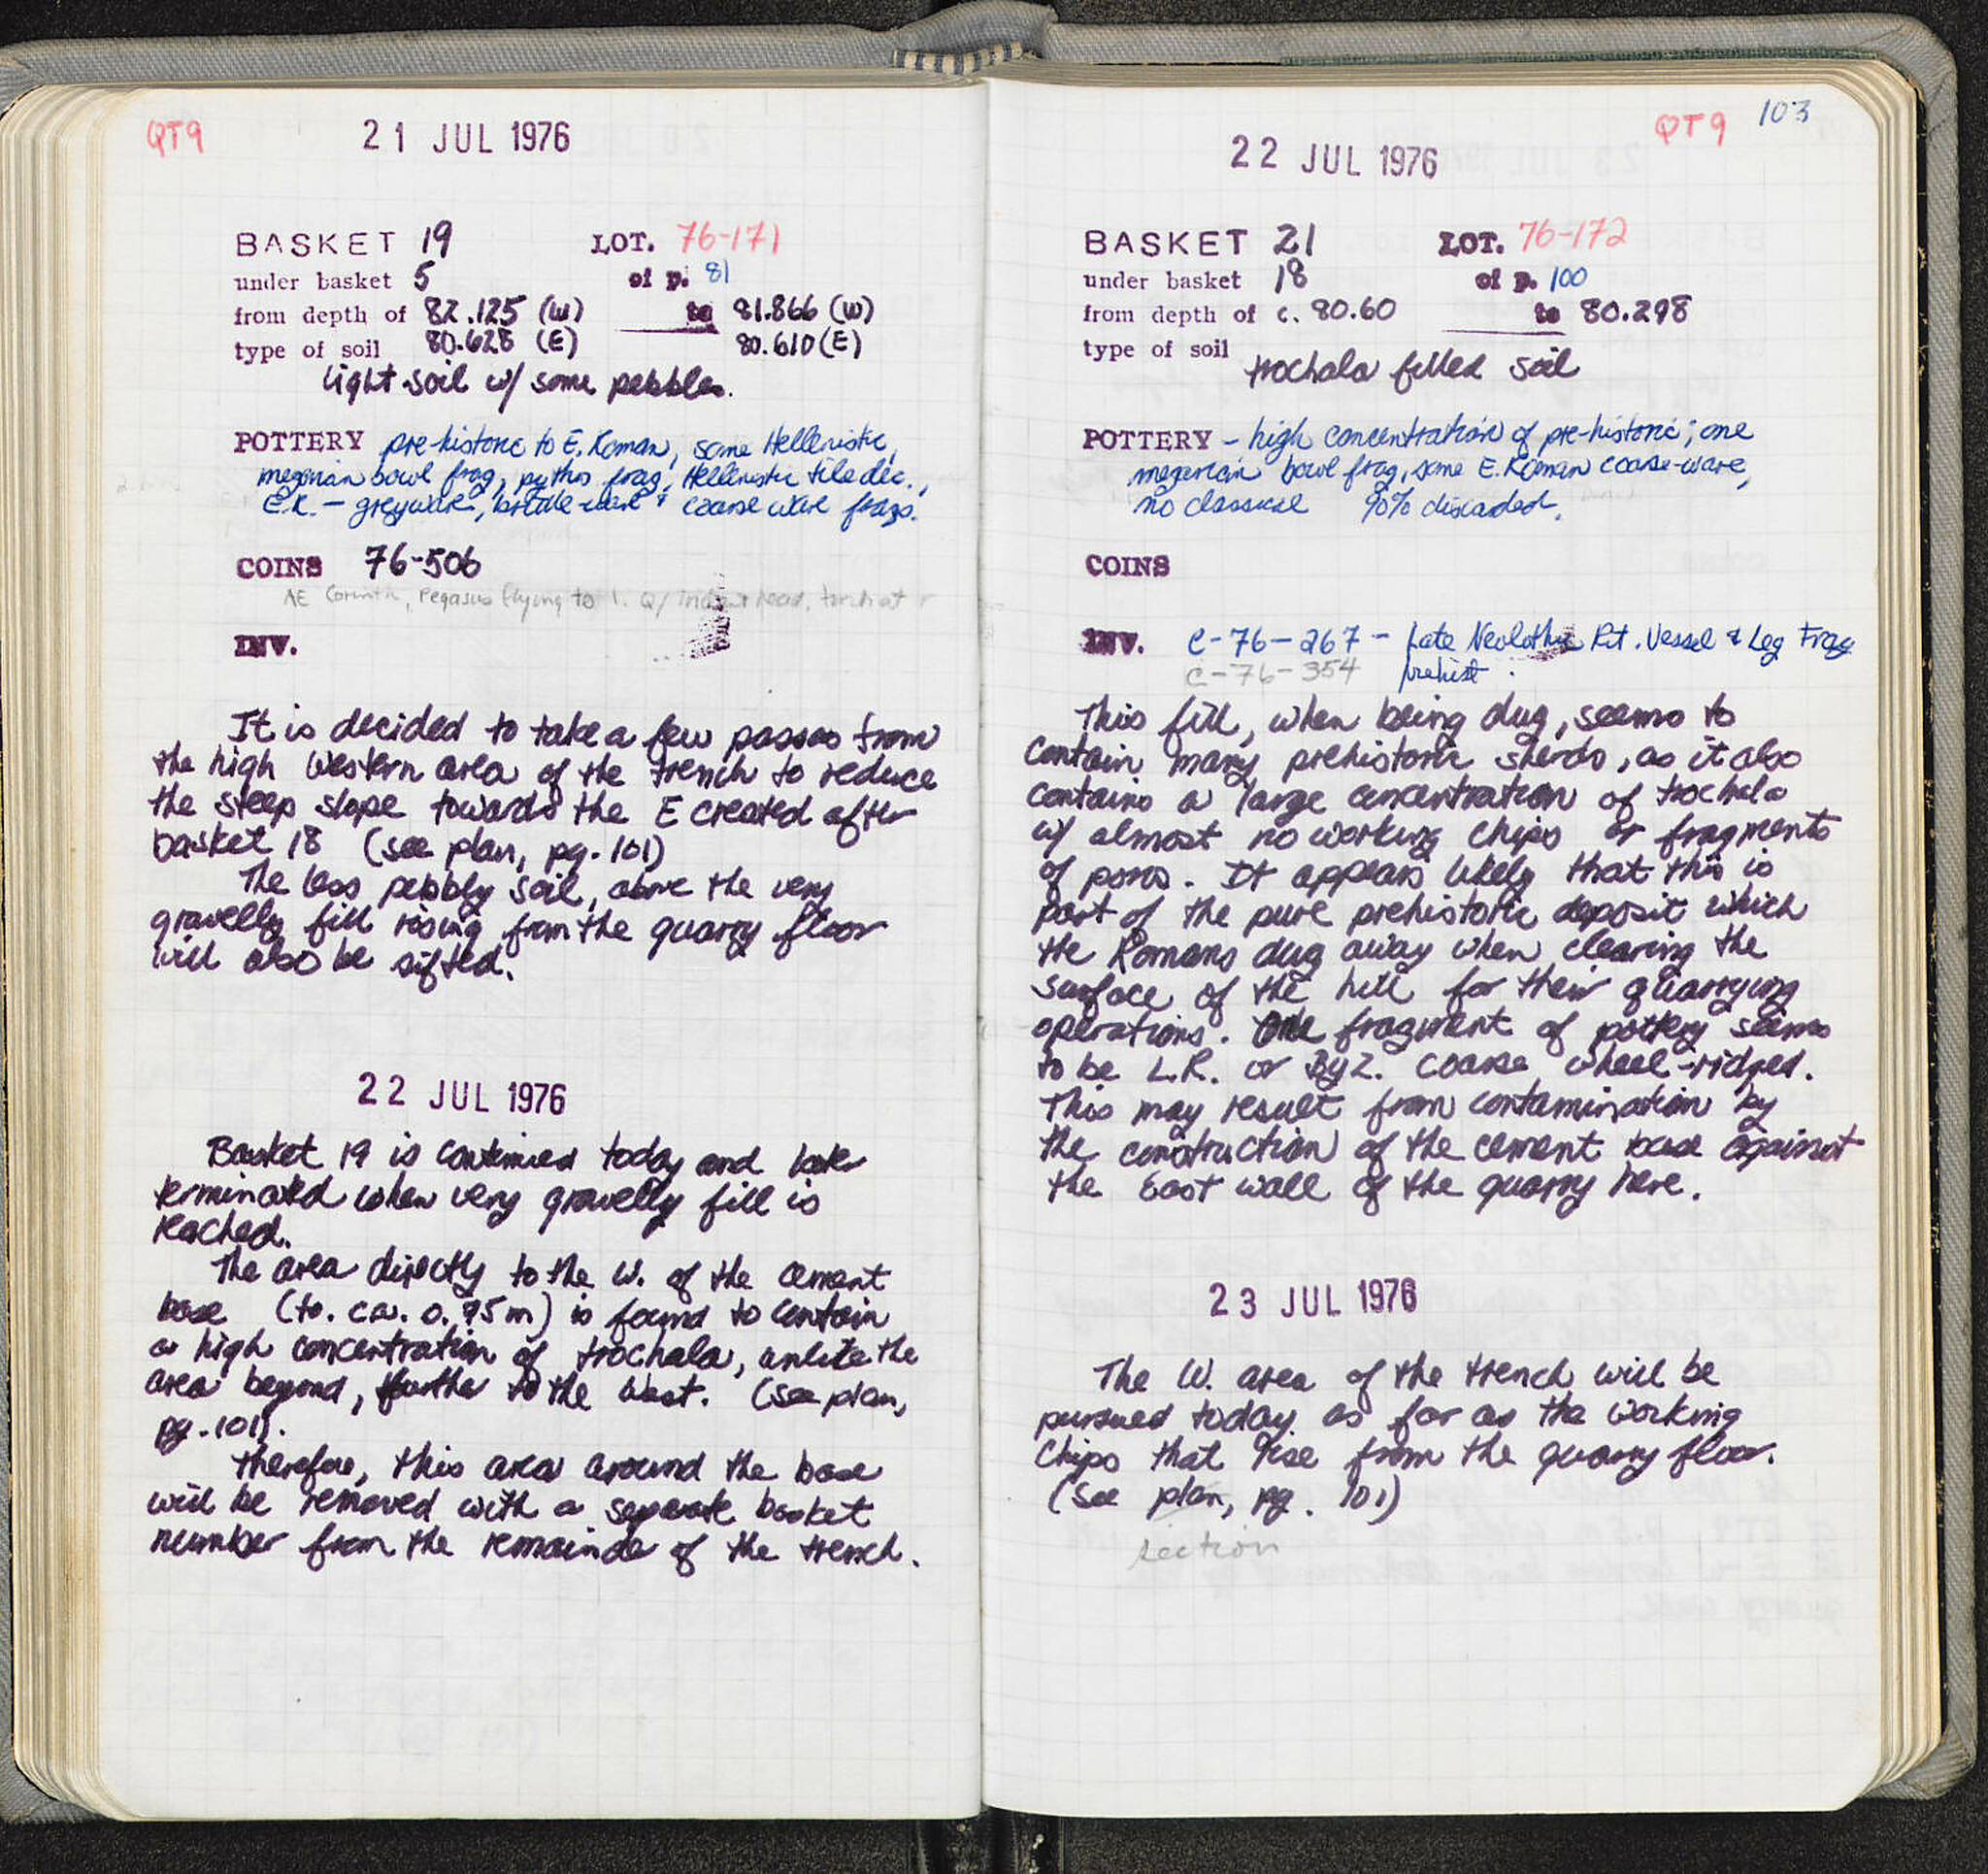 QT9
21 JUL 1976
BASKET 19 LOT. 76-171
under basket 5 of p. 81
from depth of 82.125 (W) to 81.866 (W)
80.628 (E) 80.610 (E)
type of soil
light soil w/ some pebbles.
POTTERY pre-historic to E. Roman, some Hellenistic,
megarian bowl frag, pythos frag, Hellenistic tile dec.,
E.R. – greyware, brittle-ware & coarse ware frags.
COINS 76-506
AE Corinth, Pegasus flying to l. Q/ Trident head, torch at r
INV.
It is decided to take a few passes from
the high Western area of the trench to reduce
the steep slope towards the E created after
basket 18 (see plan, pg. 101)
The less pebbly soil, above the very
gravelly fill rising from the quarry floor
will also be sifted.
22 JUL 1976
Basket 19 is continued today and later
terminated when very gravelly fill is
reached.
The area directly to the W. of the cement
base (to. ca. 0.75m) is found to contain
a high concentration of trochala, unlike the
area beyond, further to the West. (see plan,
pg. 101).
Therefore, this area around the base
will be removed with a separate basket
number from the remainder of the trench.
QT9 103
22 JUL 1976
BASKET 21 LOT. 76-172
under basket 18 of p. 100
from depth of c. 80.60 to 80.298
type of soil
trochala filled soil
POTTERY – high concentration of pre-historic; one
megarian bowl frag, some E. Roman coarse-ware,
no classical 90% discarded.
COINS
INV. C-76-267 – Late Neolithic Pit. Vessel & Leg Frag
C-76-354 prehist.
This fill, when being dug, seems to
contain many prehistoric sherds, as it also
contains a large concentration of trochala
w/ almost no working chips or fragments
of poros. It appears likely that this is
part of the pure prehistoric deposit which
the Romans dug away when clearing the
surface of the hill for their quarrying
operations. One fragment of pottery seems
to be L.R. or Byz. coarse wheel-ridged.
This may result from contamination by
the construction of the cement base against
the East wall of the quarry here.
23 JUL 1976
The W. area of the trench will be
pursued today as far as the working
chips that rise from the quarry floor.
(see plan, pg. 101)
section